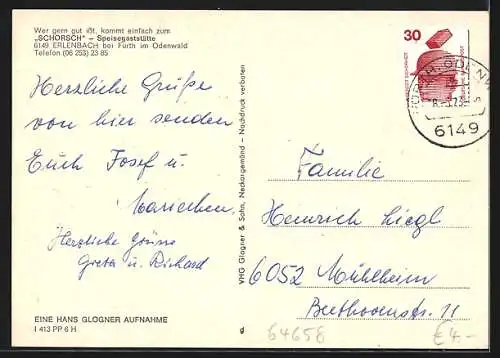 Wer gern gut ißt, kommt einfach zum
„SCHORSCH“ – Speisegaststätte
6149 ERLENBACH bei Fürth im Odenwald
Telefon (06 253) 23 85
Herzliche Grüße
von hier senden
Euch Josef u.
Mariechen.
Herzliche Grüsse
Greta u. Richard
EINE HANS GLOGNER AUFNAHME
I 413 PP 6 H
VHG Glogner & Sohn, Neckargemünd – Nachdruck verboten
30
6149
Familie
Heinrich Liegl
6052 Mühlheim
Beethovenstr. 11
64658
€4.-